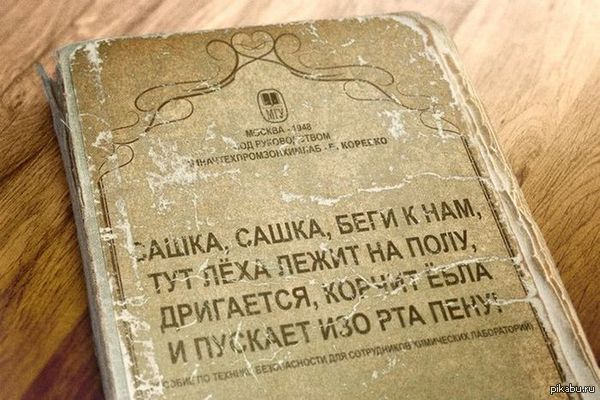 МГУ
МОСКВА - 1948
ПОД РУКОВОДСТВОМ
САШКА, САШКА, БЕГИ К НАМ,
ТУТ ЛЁХА ЛЕЖИТ НА ПОЛУ,
ДРИГАЕТСЯ, КОРЧИТ ЕБЛА
И ПУСКАЕТ ИЗО РТА ПЕНУ!
ПОСОБИЕ ПО ТЕХНИКЕ БЕЗОПАСНОСТИ ДЛЯ СОТРУДНИКОВ ХИМИЧЕСКИХ ЛАБОРАТОРИЙ
pikabu.ru